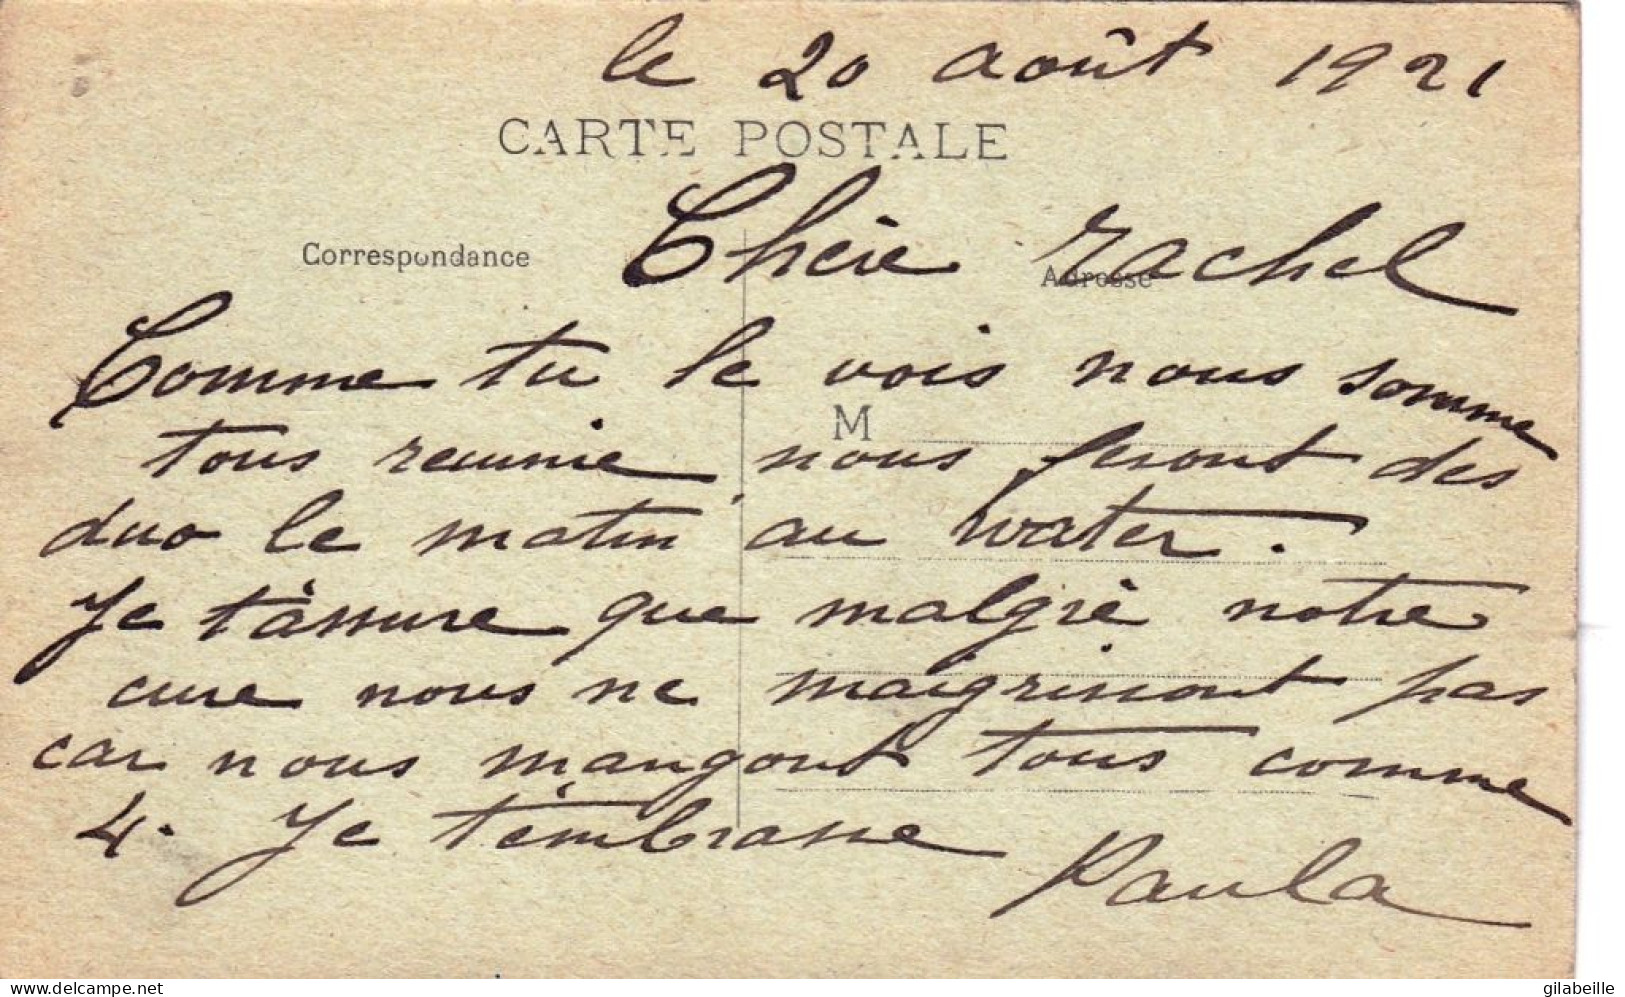 le 20 août 1921
CARTE POSTALE
Correspondance
Chére rachel
Adresse
Comme tu le vois nous somme
M
tous reunie, nous feront des
duo le matin au water.
Je t'assure que malgré notre
cure nous ne maigrissont pas
car nous mangont tous comme
4. Je t'embrasse
Paula
delcampe.net
gilabeille